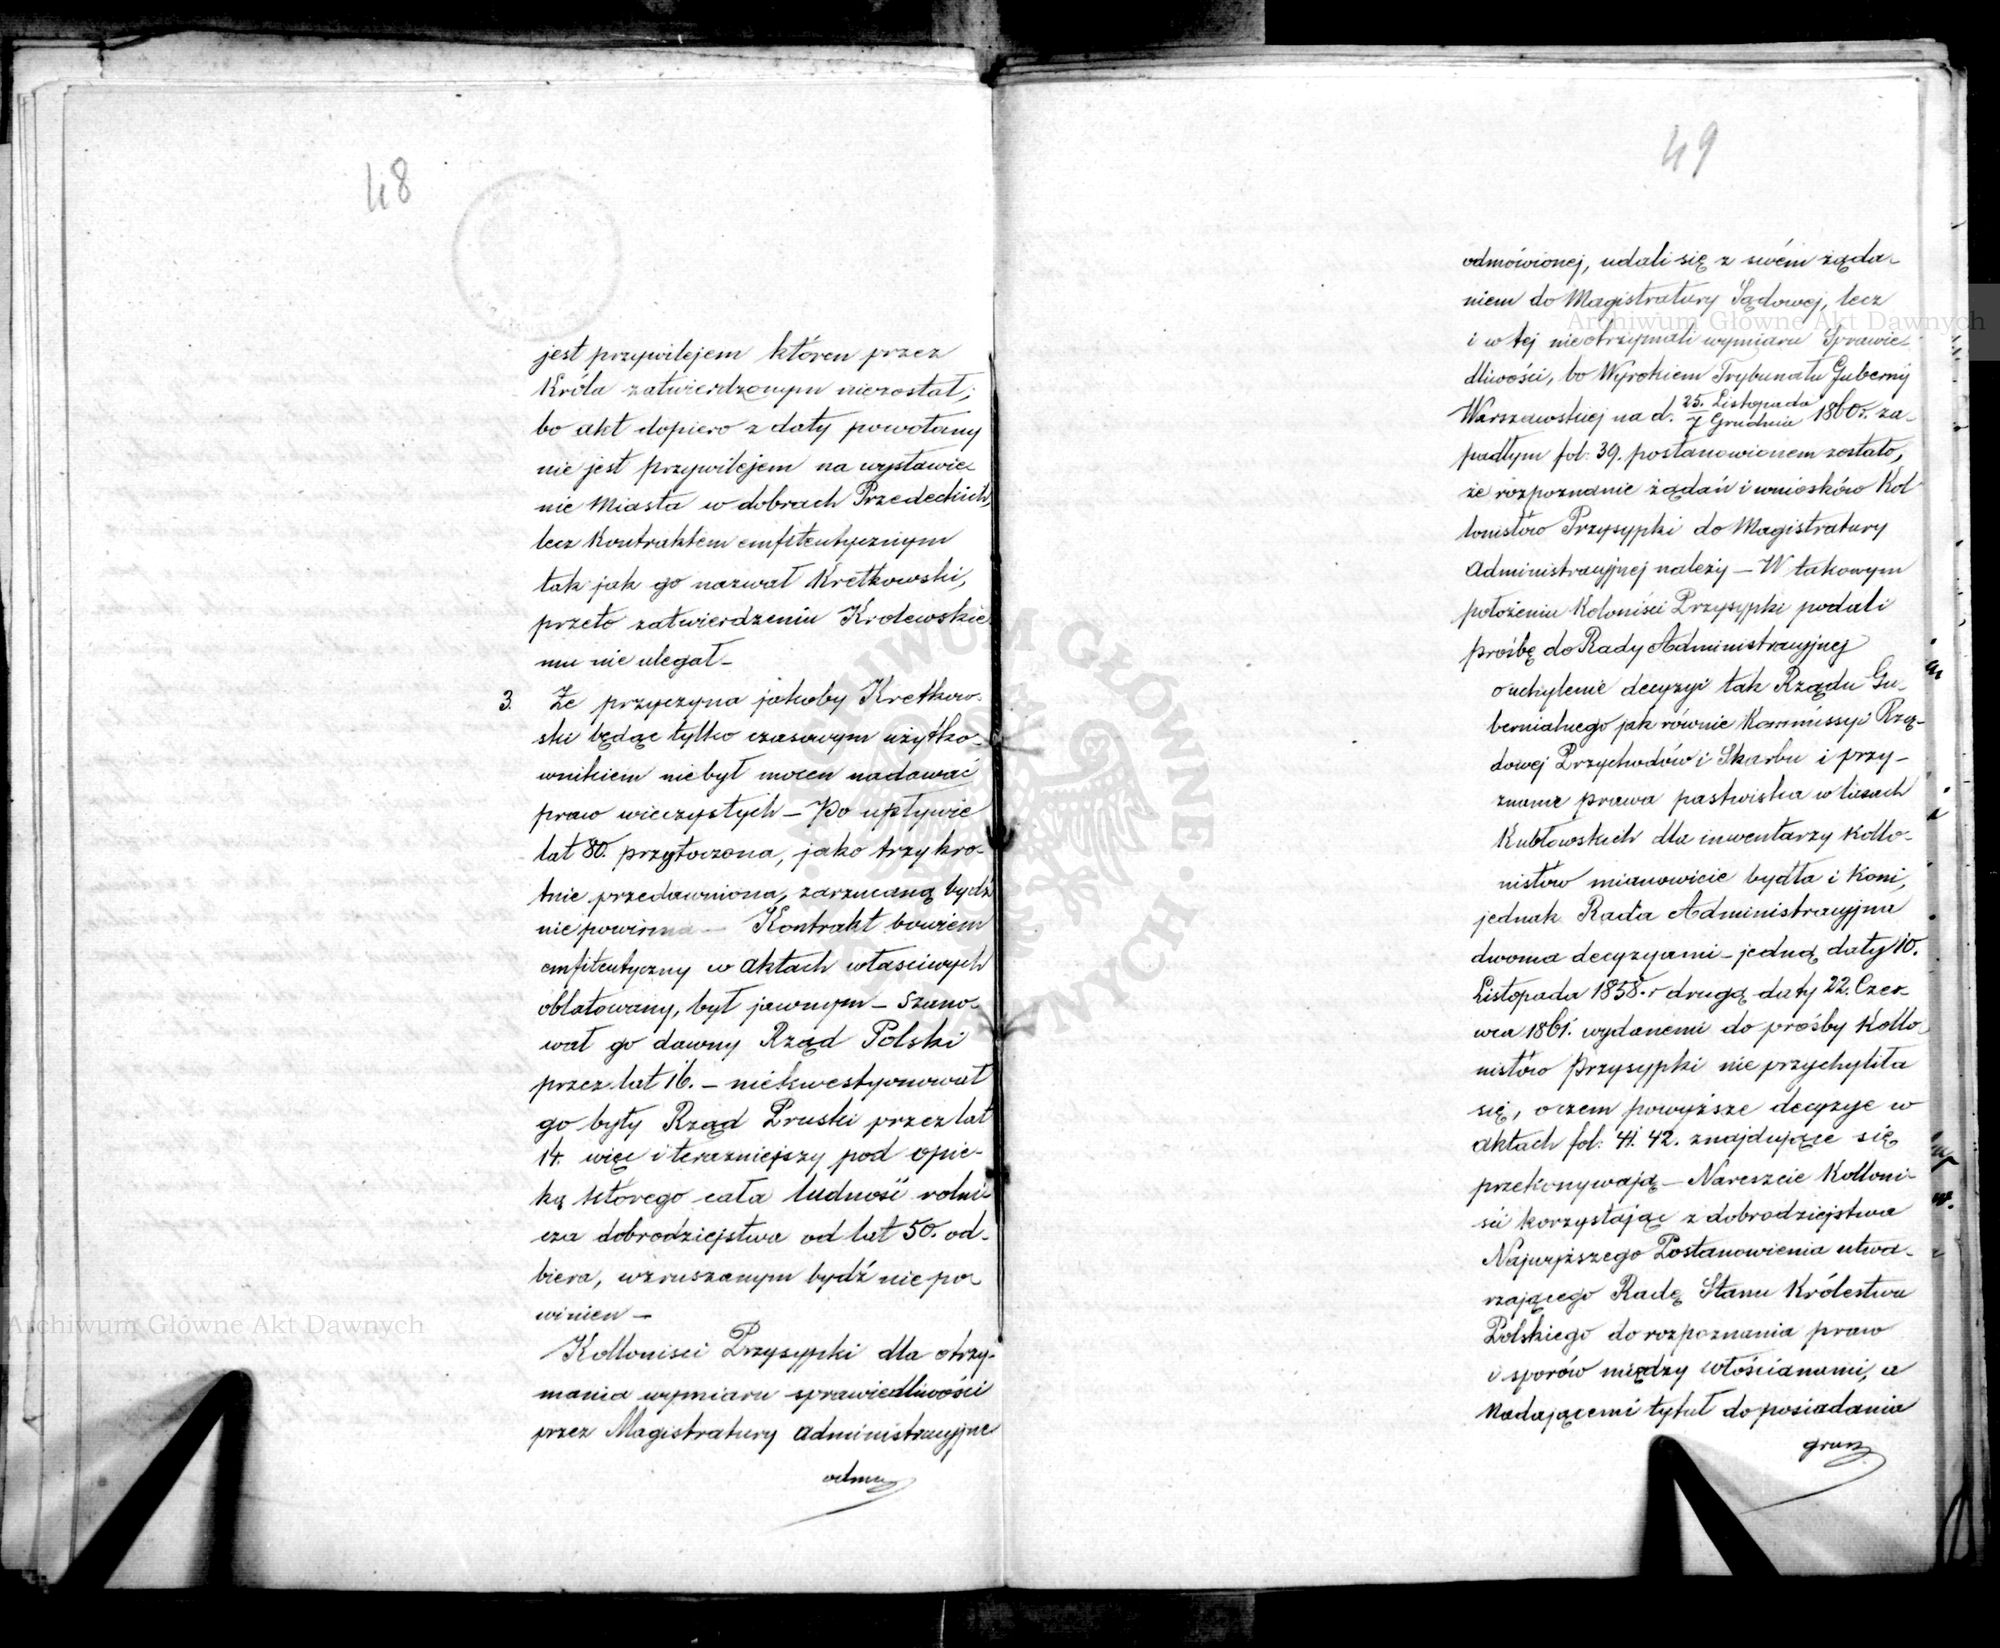 48
jest przywilejem któren przez
Króla zatwierdzonym niezostał;
bo akt dopiero z daty powołany
nie jest przywilejem na wystawie-
nie Miasta w dobrach Przedeckich,
lecz Kontraktem emfiteutycznym
tak jak go nazwał Kretkowski,
przeto zatwierdzeniu Krolewskie-
mu nie ulegał –
3. Że przyczyna jakoby Kretkow-
ski będąc tylko czasowym użytko-
wnikiem niebył mocen nadawać
praw wieczystych – Po upływie
lat 80. przytoczona, jako trzykro-
tnie przedawniona, zarzucaną bydź
niepowinna – Kontrakt bowiem
emfiteutyczny w aktach właściwych
oblatowany, był jawnym – szano-
wał go dawny Rząd Polski
przez lat 16. – niekwestyonował
go były Rząd Pruski przez lat
14. więc i terazniejszy pod opie-
ką którego cała ludność rolni-
cza dobrodziejstwa od lat 50. od-
biera, wzruszanym bydź nie po-
winien –
Kolloniści Przysypki dla otrzy-
mania wymiaru sprawiedliwości
przez Magistratury administracyjne
odmó
49
odmówionej, udali się z swém żąda-
niem do Magistratury Sądowej, lecz
i w tej nieotrzymali wymiaru Sprawie-
dliwości, bo Wyrokiem Trybunału Gubernij
Warszawskiej na d. 25. Listopada / 7 Grudnia 1860r. za-
padłym fol: 39. postanowionem zostało,
że rozpoznanie żądań i wniosków Kol-
lonistów Przysypki do Magistratury
Administracyjnej należy – W takowym
położeniu Koloniści Przysypki podali
prośbę do Rady Administracyjnej
o uchylenie decyzyi tak Rządu Gu-
bernialnego jak równie Kommissyi Rzą-
dowej Przychodów i Skarbu i przy-
znanie prawa pastwiska w lasach
Kubłowskich dla inwentarzy Kollo-
nistów mianowicie bydła i Koni,
jednak Rada Administracyjna
dwoma decyzyami – jedną daty 10.
Listopada 1858.r drugą daty 22. Czer-
wca 1861. wydanemi do prośby Kollo-
nistów Przysypki nie przychyliła
się, oczem powyższe decyzye w
aktach fol: 41. 42. znajdujące się
przekonywają – Nareszcie Kolloni-
ści korzystając z dobrodziejstwa
Najwyższego Postanowienia utwa-
rzającego Radę Stanu Królestwa
Polskiego do rozpoznania praw
i sporów między włościanami, a
Nadającemi tytuł do posiadania
grun
Archiwum Główne Akt Dawnych
Archiwum Główne Akt Dawnych
ARCHIWUM GŁÓWNE AKT DAWNYCH